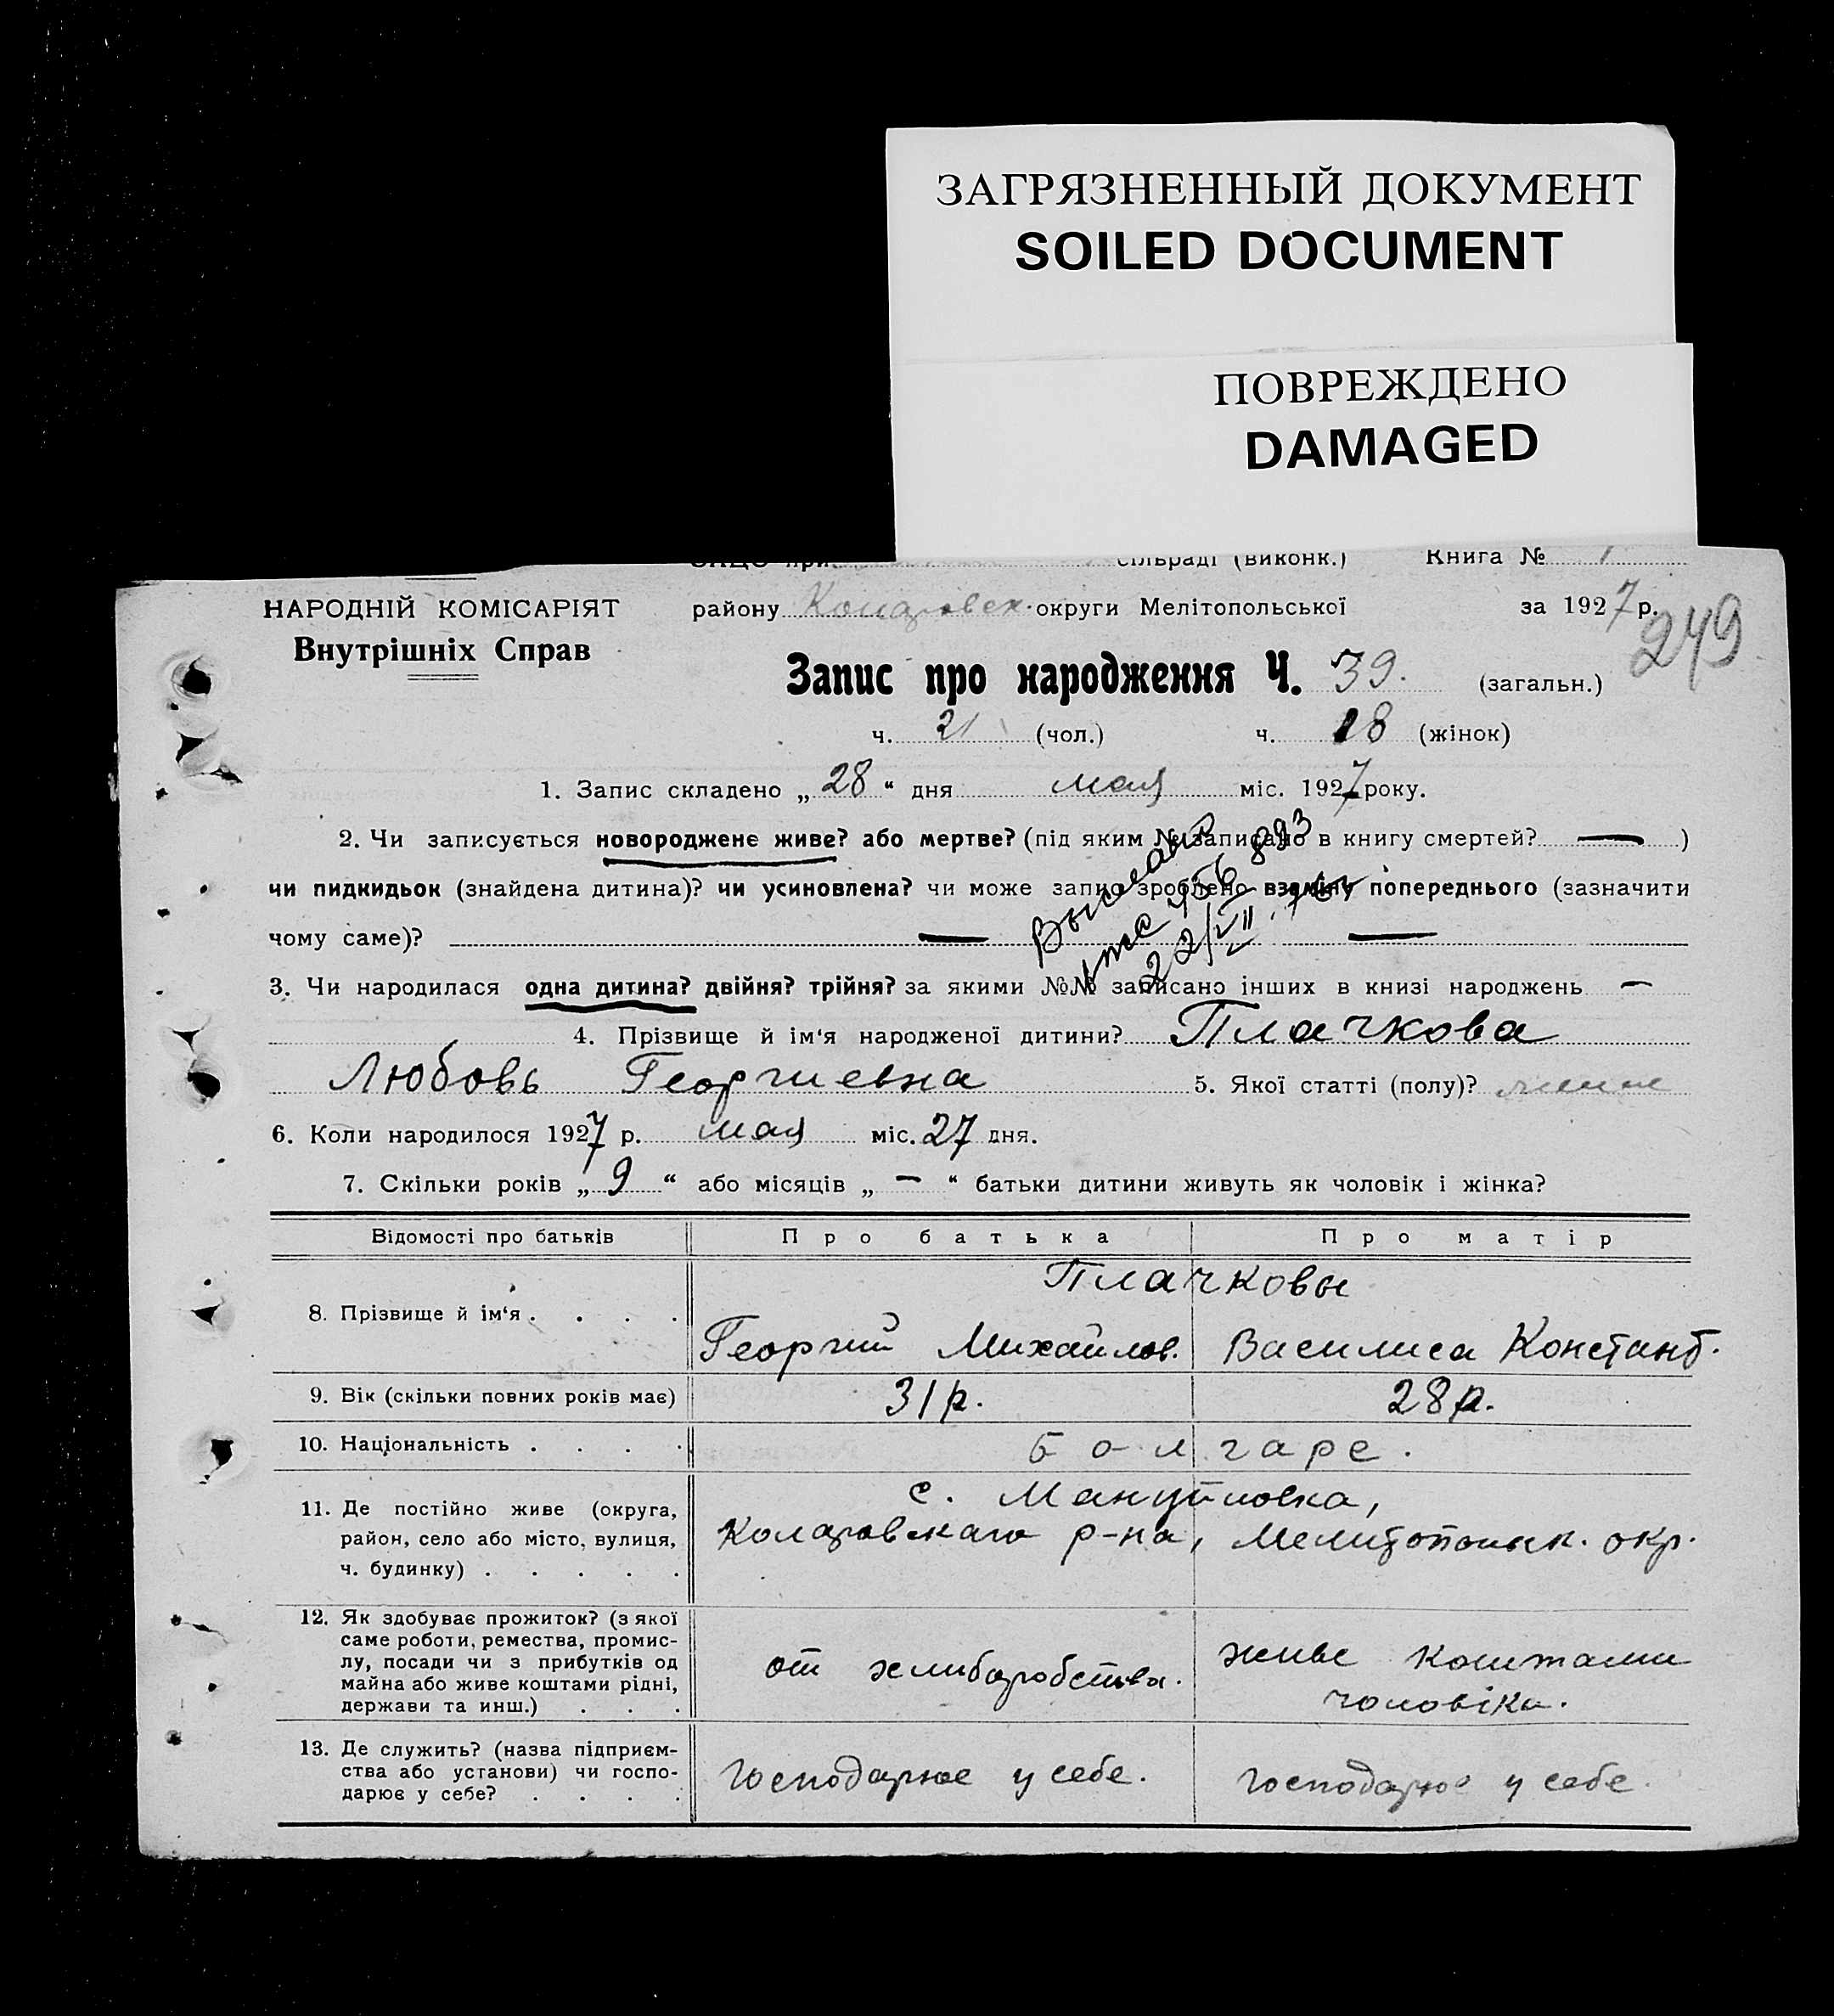 ЗАГРЯЗНЕННЫЙ ДОКУМЕНТ
SOILED DOCUMENT
ПОВРЕЖДЕНО
DAMAGED
ЗАЦС при сільраді (виконк.) Книга № 1
НАРОДНІЙ КОМІСАРІЯТ району округи Мелітопольської за 1927 р.
Внутрішніх Справ
249
Запис про народження Ч. 39. (загальн.)
ч. 21 (чол.) ч. 18 (жінок)
1. Запис складено „ 28 “ дня мая міс. 1927 року.
2. Чи записується новороджене живе? або мертве? (під яким № записано в книгу смертей? — )
чи пидкидьок (знайдена дитина)? чи усиновлена? чи може запис зроблено взаміну попереднього (зазначити
чому саме)? — —
22/VII
3. Чи народилася одна дитина? двійня? трійня? за якими №№ записано інших в книзі народжень —
4. Прізвище й ім‘я народженої дитини? Плачкова
Любовь Георгиевна 5. Якої статті (полу)?
6. Коли народилося 1927 р. мая міс. 27 дня.
7. Скільки років „ 9 “ або місяців „ — “ батьки дитини живуть як чоловік і жінка?
Відомості про батьків Про батька Про матір
Плачковы
8. Прізвище й ім‘я . . . . Георгий Михайлов. Василиса Констант.
9. Вік (скільки повних років має) 31 р. 28 р.
10. Національність . . . . Болгаре.
11. Де постійно живе (округа, с. Мануйловка,
район, село або місто, вулиця, Коларовскаго р-на, Мелитопольск. окр.
ч. будинку) . . . . .
12. Як здобуває прожиток? (з якої
саме роботи, ремества, промис-
лу, посади чи з прибутків од от хлибаробства. живе коштами
майна або живе коштами рідні, чоловіка.
держави та инш.) . . .
13. Де служить? (назва підприєм-
ства або установи) чи госпо- господарює у себе. господарює у себе.
дарює у себе? . . . .